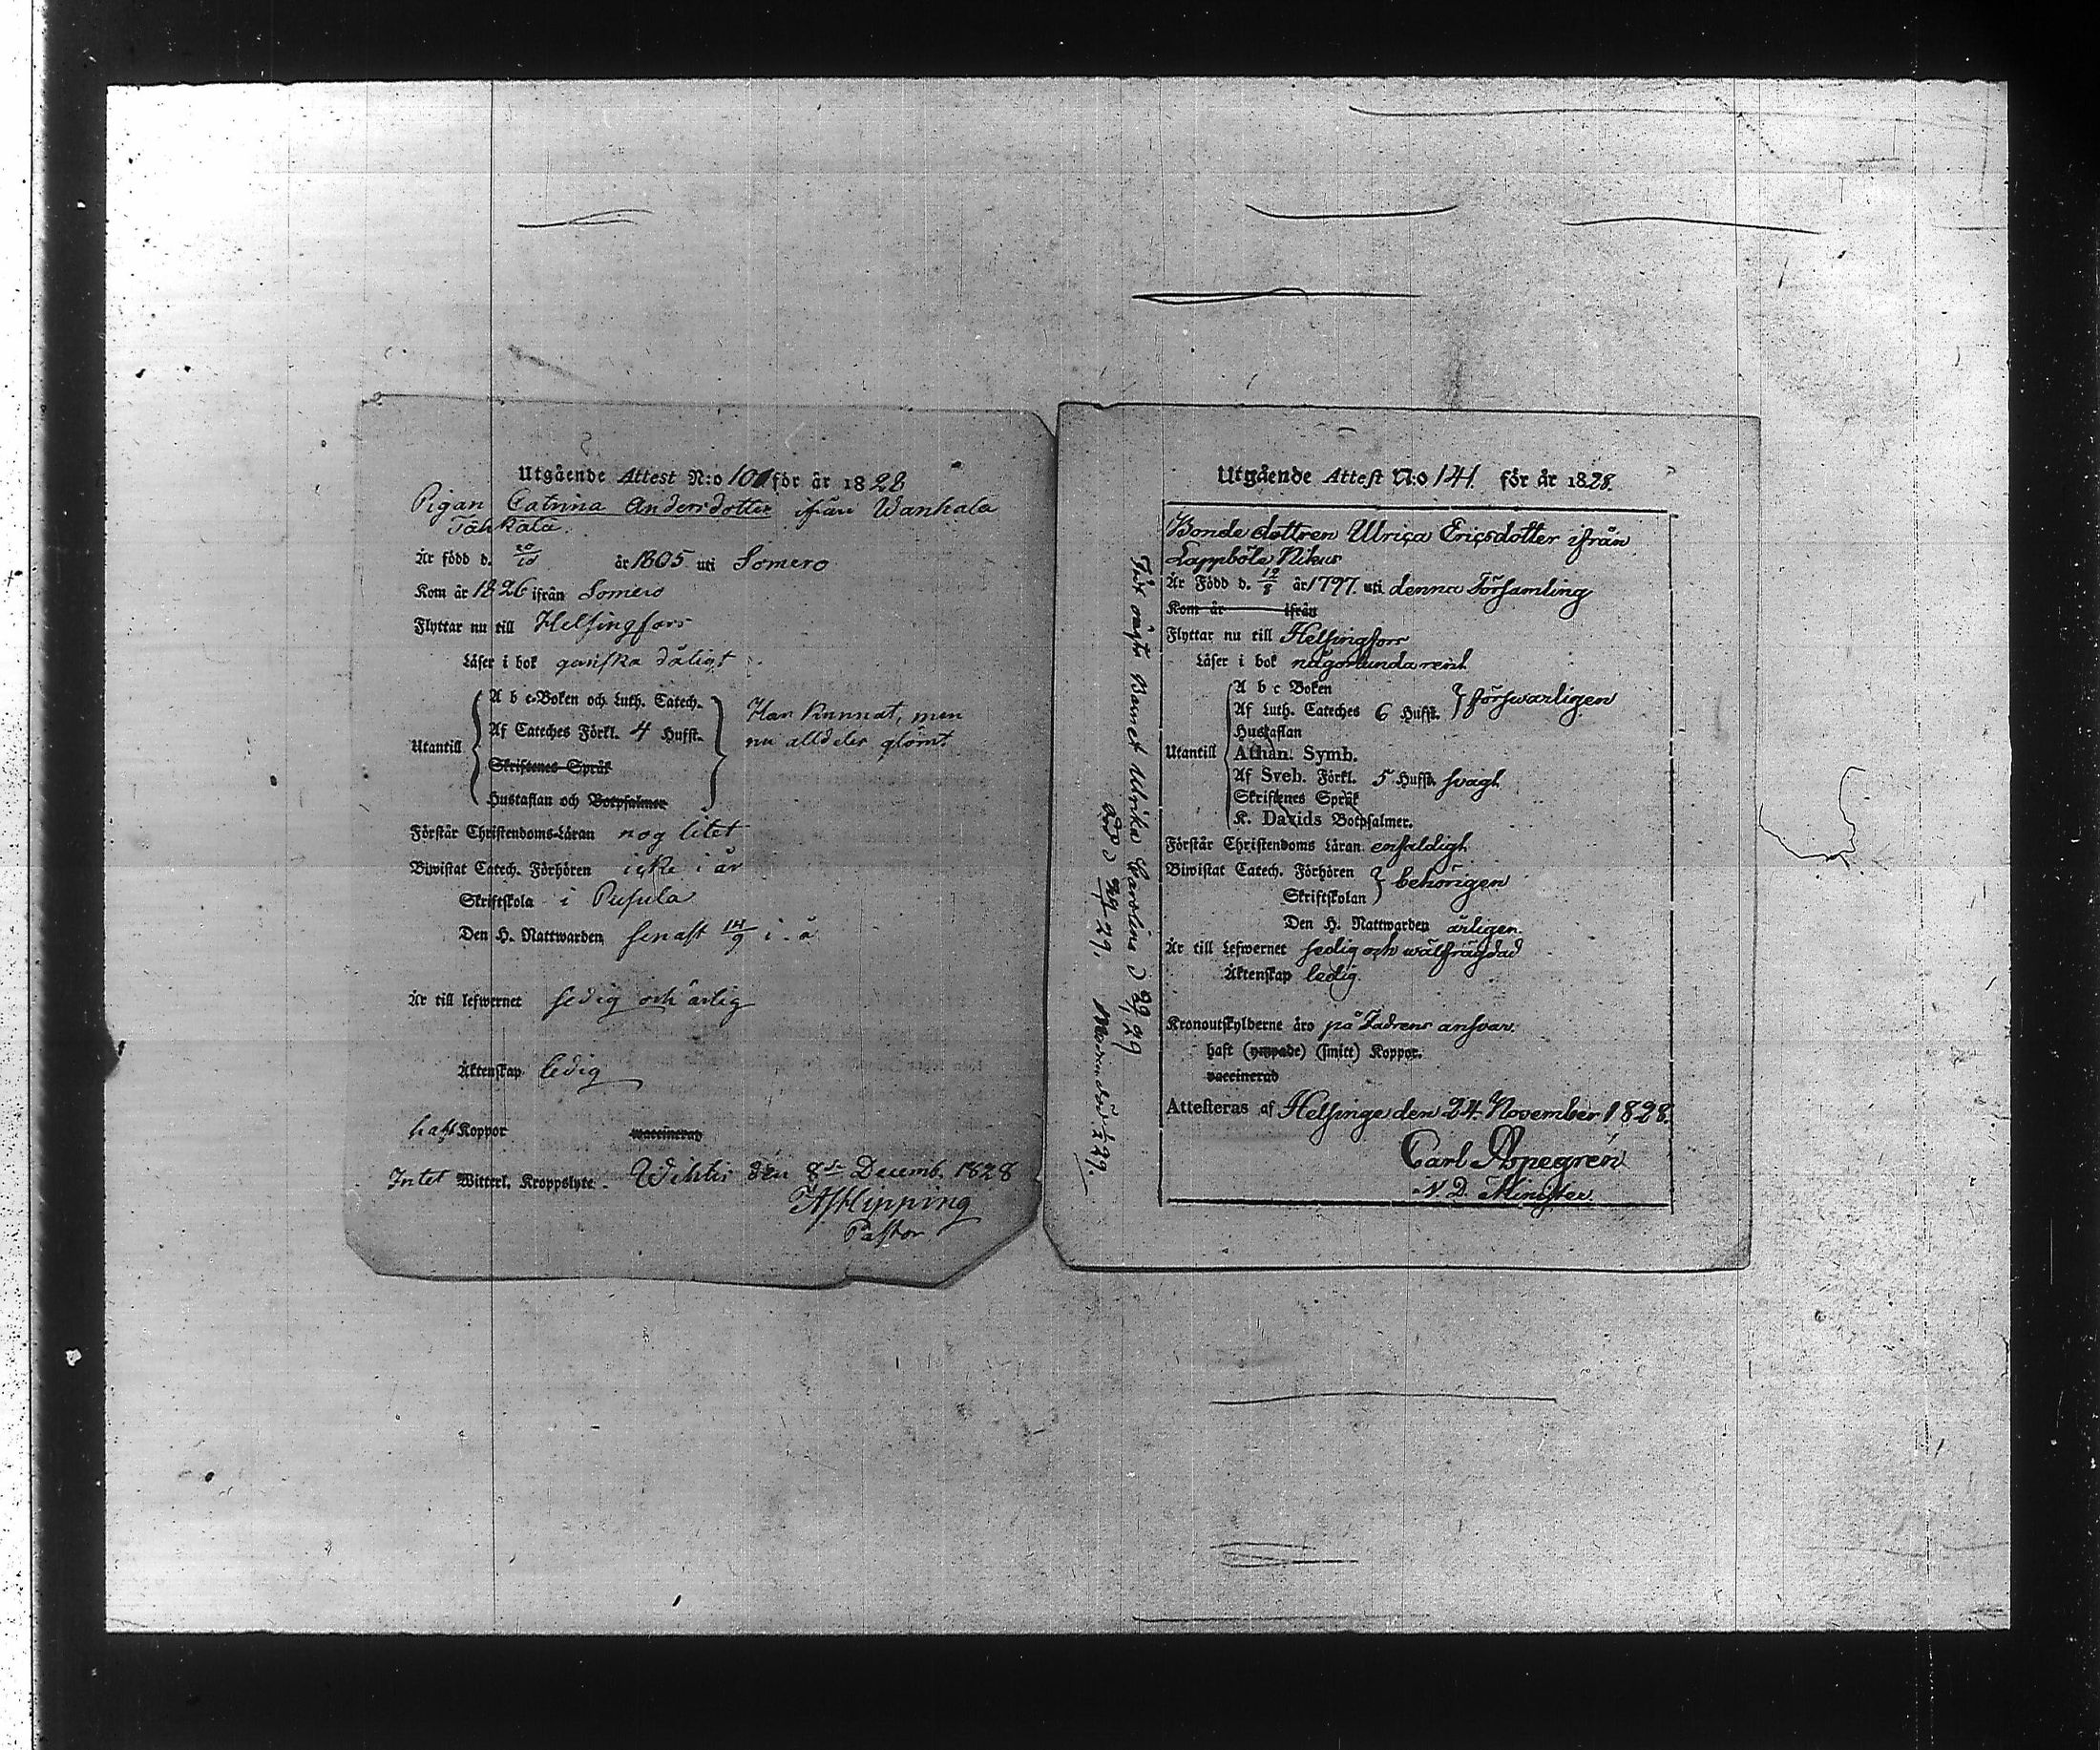 Utgående Attest N:o 101 för år 1828
Pigan Catrina Andersdotter ifrån Wanhala
Tahkala.
Är född d. 20/10 år 1805 uti Somero
Kom år 1826 ifrån Somero
Flyttar nu till Helsingfors
Läser i bok ganska dåligt
Utantill
A b c-Boken och Luth. Catech.
Af Cateches Förkl. 4 Hufst.
Skriftenes Språk
Hustaflan och Botpsalmer
Har kunnat, men
nu alldeles glömt.
Förstår Christendoms-Läran nog litet
Biwistat Catech. Förhören icke i år
Skriftskola i Pusula
Den H. Nattwarden senast 14/9 i. å
Är till lefwernet sedig och ärlig
Äktenskap ledig
haft Koppor waccinerad
Intet Witterl. Kroppslyte. Wihtis den 8de Decemb. 1828
Hipping
Pastor
Utgående Attest N:o 141. för år 1828.
Bonde dottren Ulrica Ericsdotter ifrån
Lappböle Nikus
Är Född d. 19/8 år 1797. uti denna Församling
Kom år ifrån
Flyttar nu till Helsingfors
Läser i bok någorlunda rent
Utantill
A b c Boken
Af Luth. Cateches 6 Hufst. försvarligen
Hustaflan
Athan. Symb.
Af Sveb. Förkl. 5 Hufst. svagt
Skriftenes Språk
K. Davids Botpsalmer.
Förstår Christendoms Läran. enfaldigt
Biwistat Catech. Förhören
Skriftskolan behörigen
Den H. Nattwarden årligen.
Är till Lefwernet sedig och wälfrägdad
Äktenskap ledig.
Kronoutskylderne äro på Fadrens ansvar.
haft (ympade) (smitt) Koppor.
vaccinerad
Attesteras af Helsinge den 24 November 1828.
Carl Aspegrén
V. D. Minister
Barnet Ulrika Carolina d 29
död d 29,